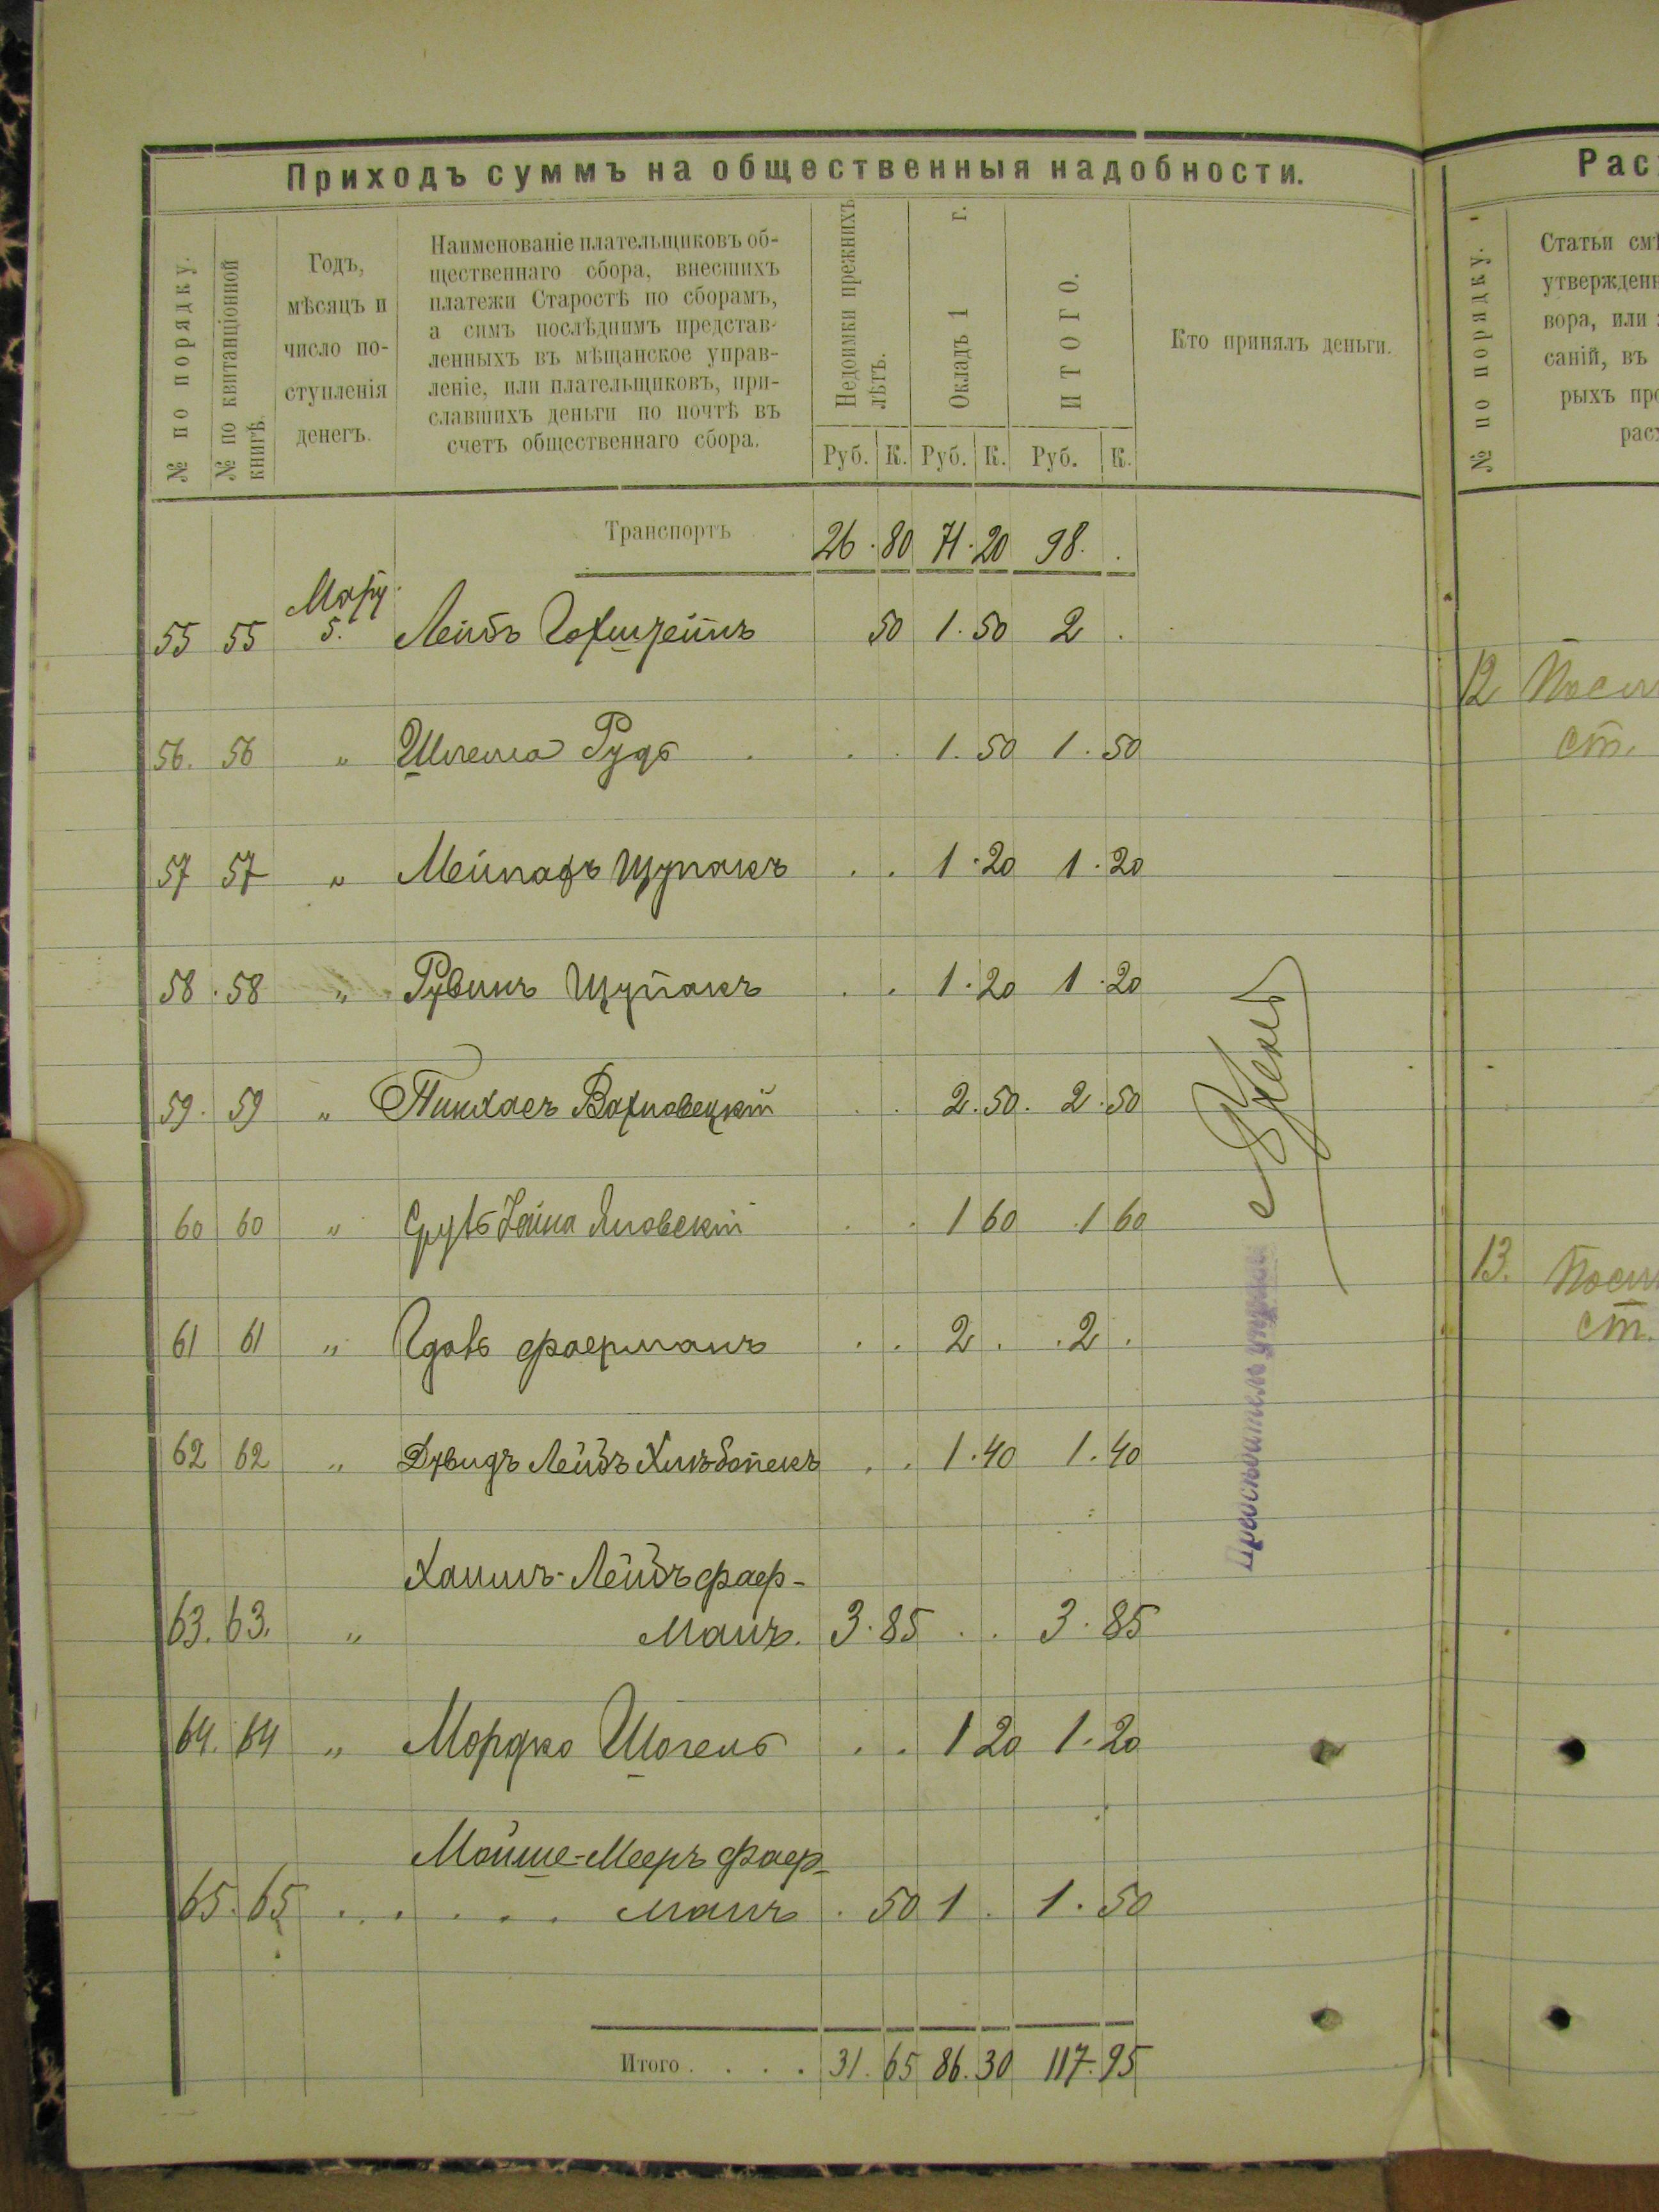 Приходъ суммъ на общественныя надобности.
№ по порядку.
№ по квитанціонной
книгѣ.
Годъ,
мѣсяцъ и
число по-
ступленія
денегъ.
Наименованіе плательщиковъ об-
щественнаго сбора, внесшихъ
платежи Старостѣ по сборамъ,
а симъ послѣднимъ представ-
ленныхъ въ мѣщанское управ-
леніе, или плательщиковъ, при-
славшихъ деньги по почтѣ въ
счетъ общественнаго сбора.
Недоимки прежнихъ
лѣтъ.
Окладъ 1 г.
ИТОГО.
Кто принялъ деньги.
Руб. К. Руб. К. Руб. К.
Транспортъ 26. 80 71. 20 98. .
55 55 5. Лейбъ 50 1. 50 2 .
56. 56 „ Рудь . . . 1. 50 1. 50
57 57 „ Щупакъ . . 1. 20 1. 20
58. 58 „ Рувинъ Щупакъ . . 1. 20 1. 20
59. 59 „ Пинхасъ Вахновецкій . . 2. 50. 2. 50
60 60 „ Сруль Хаимъ Яновскій . . 1 60 . 1 60
61 61 „ Фаерманъ . . 2 . . 2 .
62 62 „ Дувидъ Лейбъ Хлѣбопекъ . . 1. 40 1. 40
Хаимъ-Лейбъ Фаер-
63. 63. „ манъ. 3. 85 . . 3. 85
64. 64 „ Мордко . . 1 20 1. 20
Мойше-Мееръ Фаер-
65. 65 . . . . . манъ . 50 1 . 1. 50
Итого . . . . 31. 65 86. 30 117. 95
Рас
№ по порядку.
Статьи смѣ
утвержденн
вора, или
саній, въ
рыхъ про
расх
12
ст.
13.
ст.